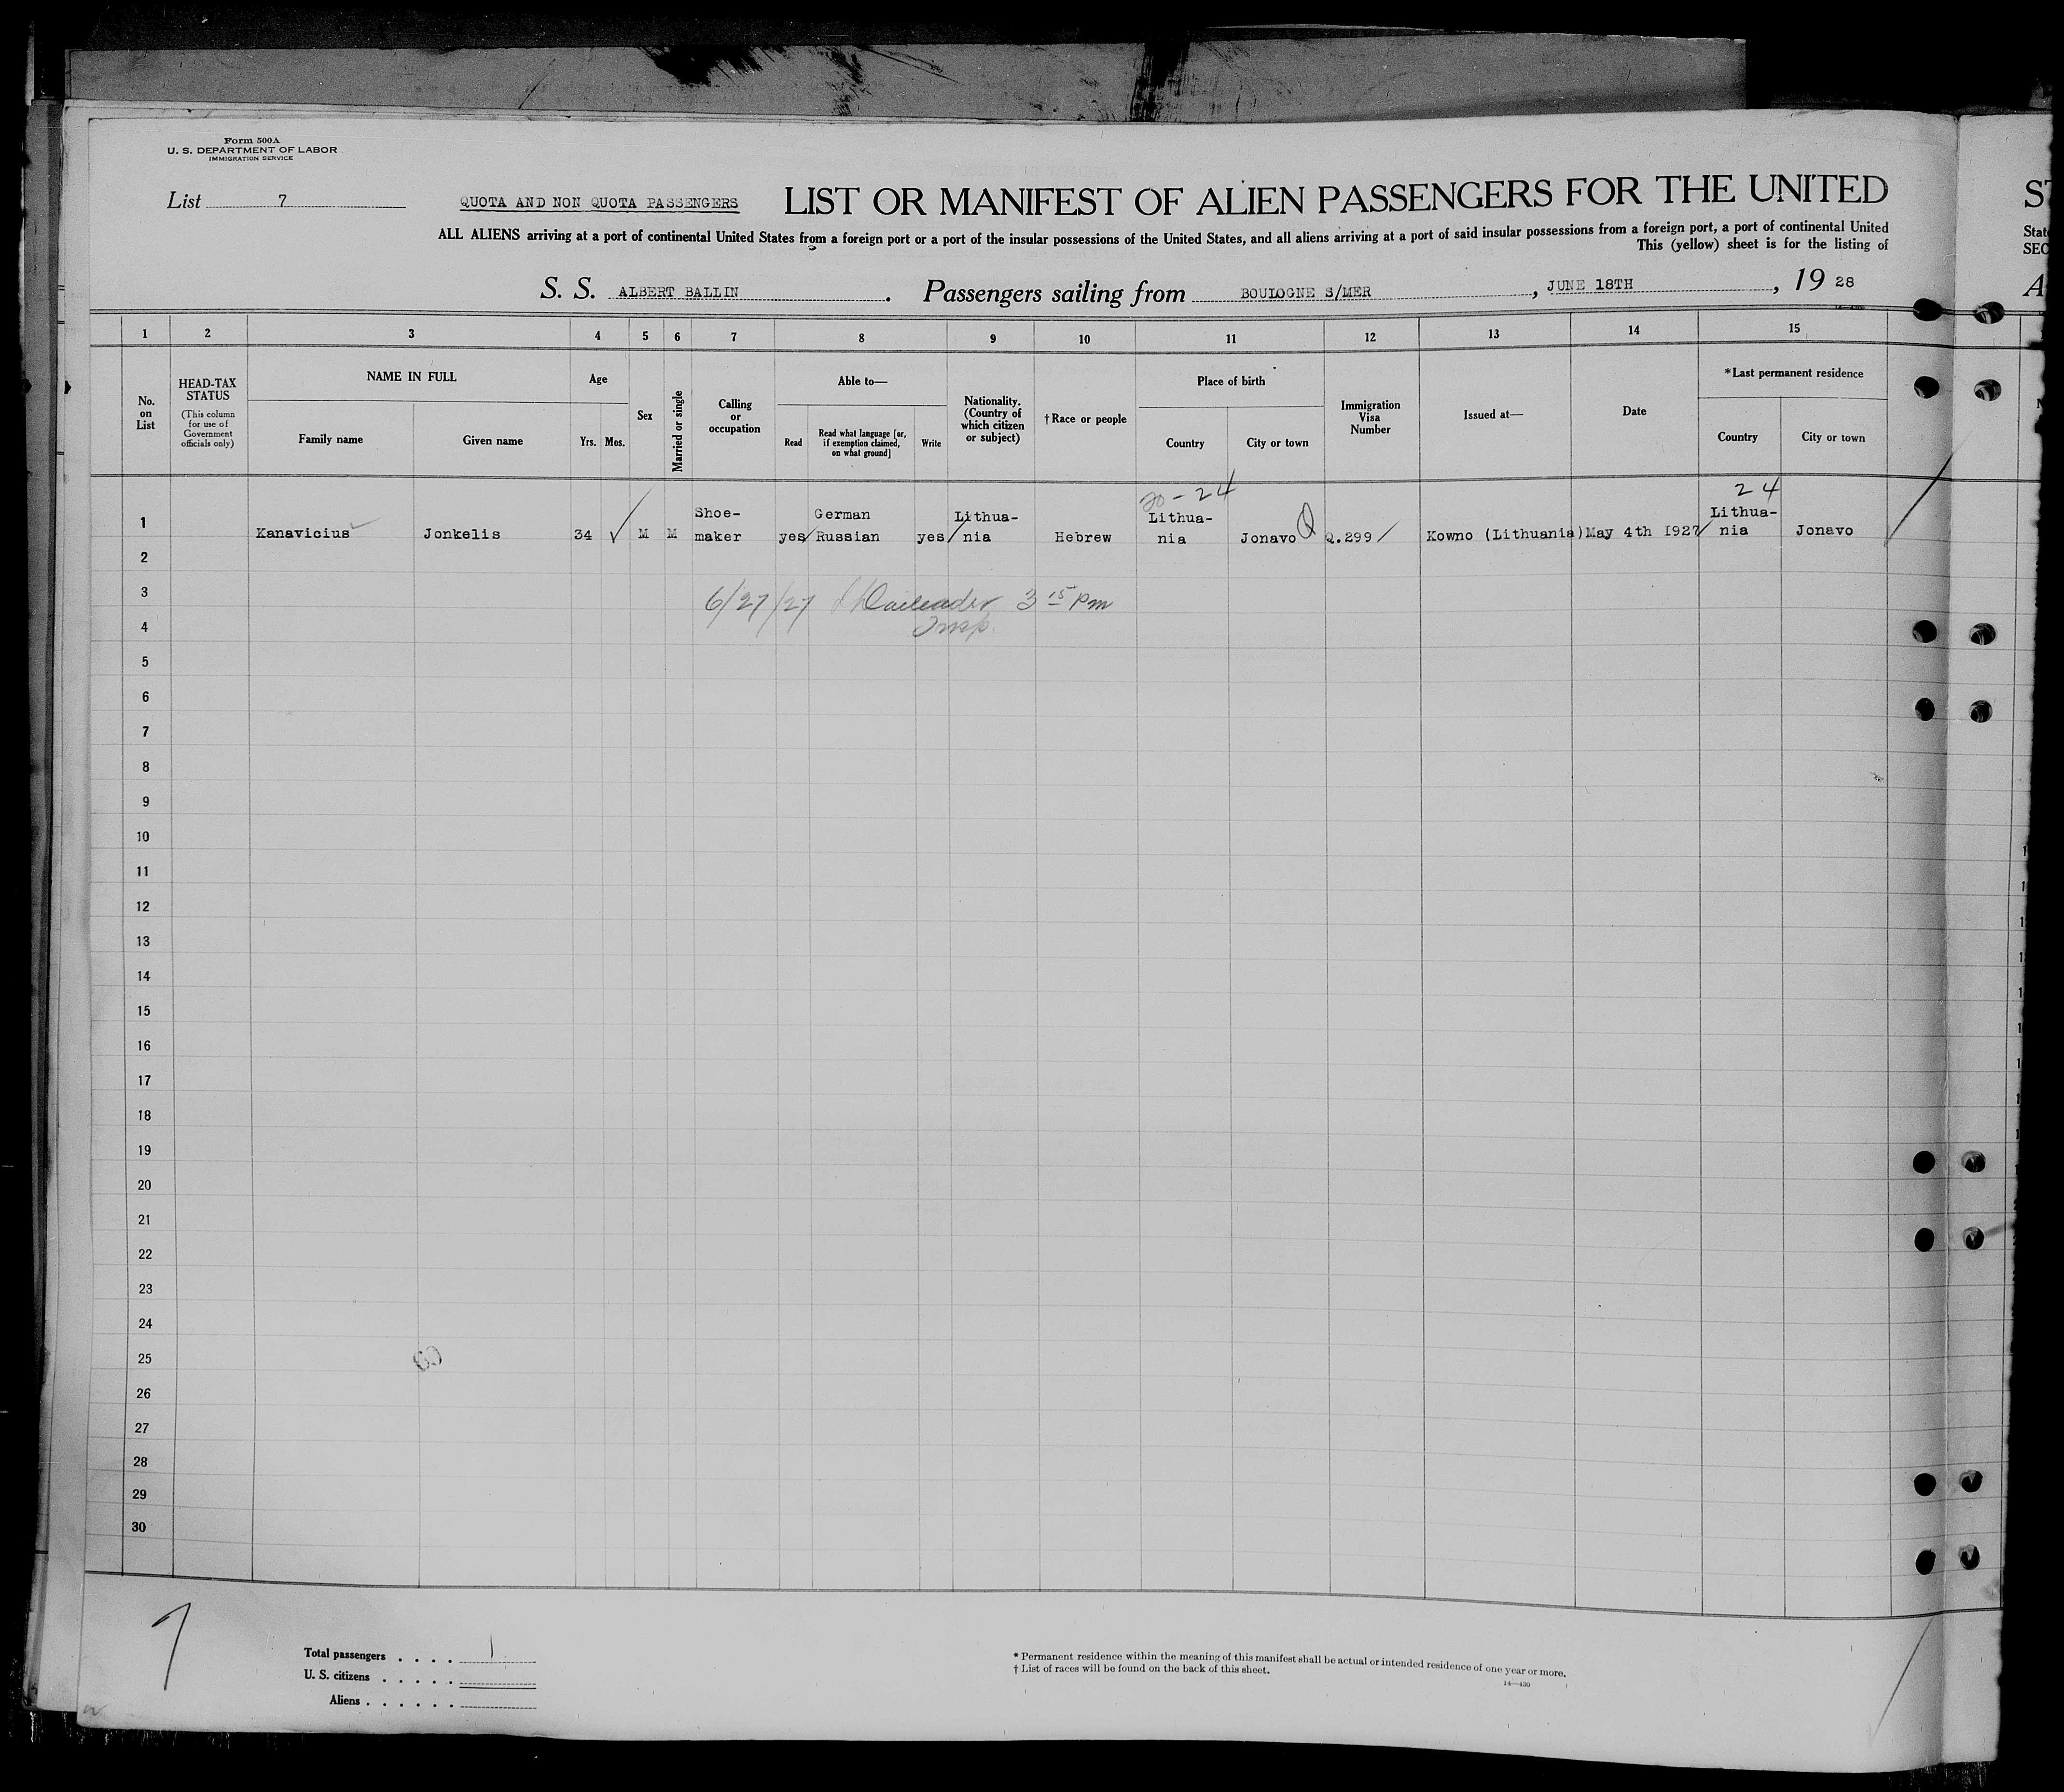 Form 500A
U. S. DEPARTMENT OF LABOR
IMMIGRATION SERVICE
List 7
QUOTA AND NON QUOTA PASSENGERS
LIST OR MANIFEST OF ALIEN PASSENGERS FOR THE UNITED
ALL ALIENS arriving at a port of continental United States from a foreign port or a port of the insular possessions of the United States, and all aliens arriving at a port of said insular possessions from a foreign port, a port of continental United
This (yellow) sheet is for the listing of
S. S. ALBERT BALLIN . Passengers sailing from BOULOGNE S/MER , JUNE 18TH , 19 28
1 2 3 4 5 6 7 8 9 10 11 12 13 14 15
No. on List
HEAD-TAX STATUS
(This column for use of Government officials only)
NAME IN FULL
Family name
Given name
Age
Yrs. Mos.
Sex
Married or single
Calling or occupation
Able to—
Read
Read what language [or, if exemption claimed, on what ground]
Write
Nationality. (Country of which citizen or subject)
†Race or people
Place of birth
Country
City or town
Immigration Visa Number
Issued at—
Date
*Last permanent residence
Country
City or town
20-24
24
1 Kanavicius Jonkelis 34 M M Shoe-maker yes German Russian yes Lithua-nia Hebrew Lithua-nia Jonavo Q Q.299 Kowno (Lithuania) May 4th 1927 Lithua-nia Jonavo
2
3
6/27/27 3 15 pm
Insp.
4
5
6
7
8
9
10
11
12
13
14
15
16
17
18
19
20
21
22
23
24
25
26
27
28
29
30
7
Total passengers . . . . 1
U. S. citizens . . . . .
Aliens . . . . . .
* Permanent residence within the meaning of this manifest shall be actual or intended residence of one year or more.
† List of races will be found on the back of this sheet.
14—430